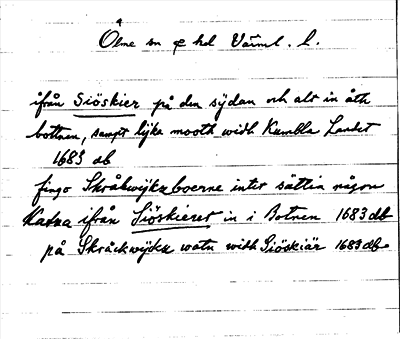 4
Ölme sn o hd Värml. l.
ifrån Siöskier på den sÿdan och alt in åth
bottnen, sampt lÿka mooth widh Kumbla Landet
1683 db
finge Skråkwÿka boerne intet sättia någon
Katsa ifrån Siöskieret in i Botnen 1683 db
på Skräckwÿcka watn widh Siöskiär 1683 db